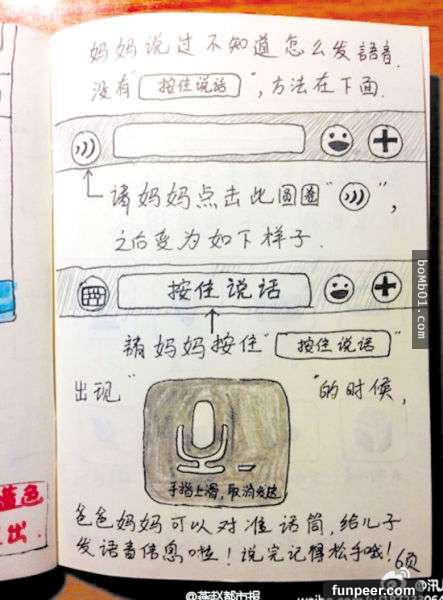 妈妈说过不知道怎么发語音.
没有"按住说话",方法在下面.
请妈妈点击此圆圈" ",
之后变为如下样子.
按住说话
請妈妈按住"按住说话"
出现" "的时候,
手指上滑,取消发送
爸爸妈妈可以对准话筒,给儿子
发语音信息啦!说完记得松手哦!
6页
bomb01.com
@燕赵都市报
funpeer.com